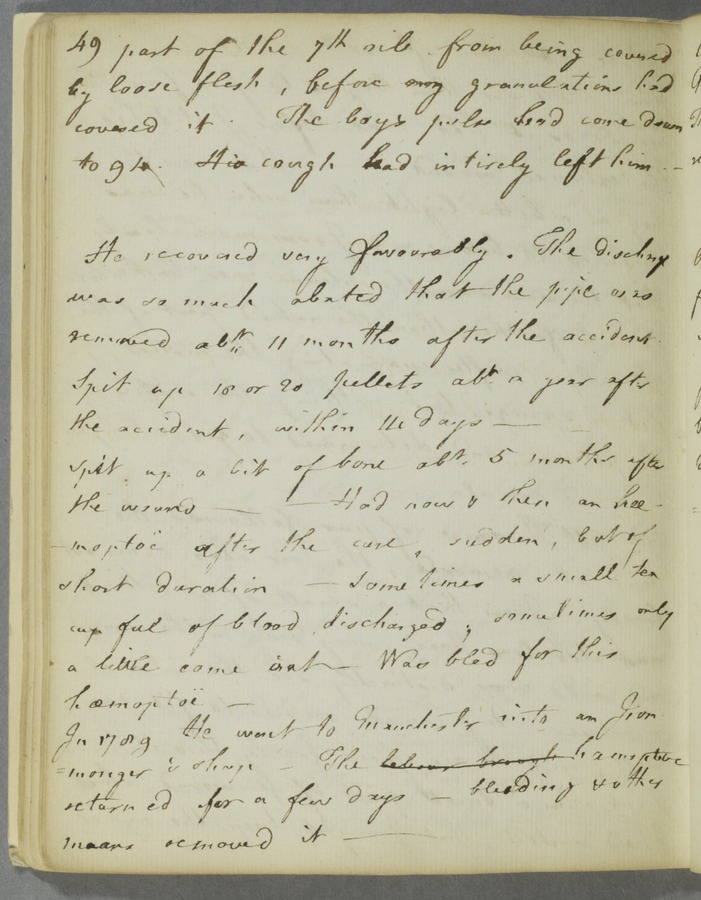 49 part of the 7th rib from being covered
by loose flesh, before any granulations had
covered it. The boys pulse had come down
to 94. His cough had intirely left him -
He recovered very favourably. The discharge
was so much abated that the pipe was
removed abt. 11 months after the accident.
Spit up 18 or 20 pellets abt. a year after
the accident, within 14 days —
Spit up a bit of bone abt. 5 months after
the wound — — Had now & then an hæ-
-moptoë after the cure, sudden, but of
short duration — sometimes a small tea
cup ful of blood discharged; sometimes only
a little came out — Was bled for this
hæmoptoë —
In 1789 He went to Manchester into an Iron
=monger's shop - The labour brough hæmoptoe
returned for a few days — bleeding & other
means removed it —